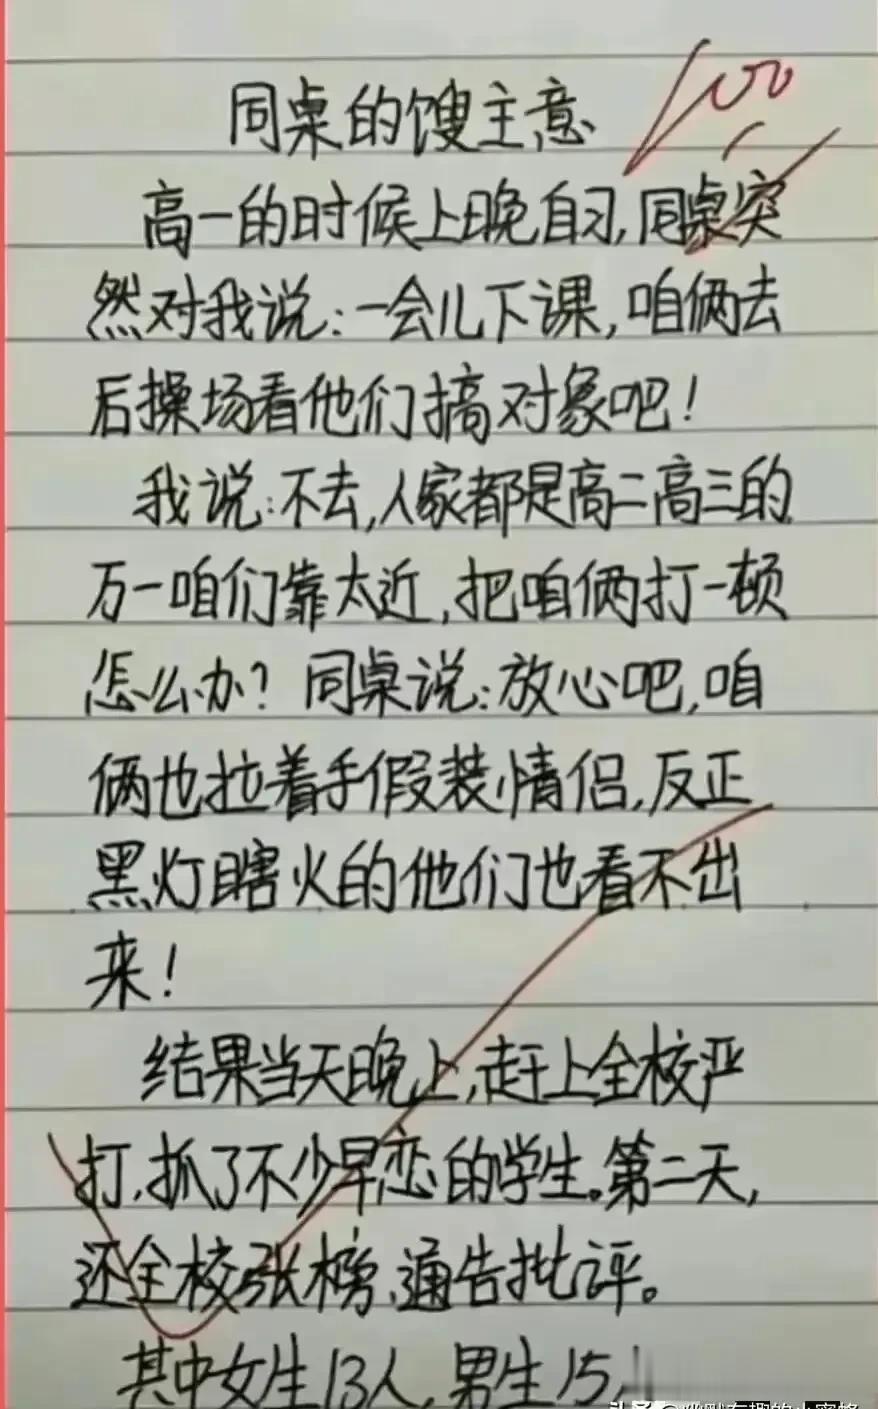 同桌的馊主意
100
高一的时候上晚自习,同桌突
然对我说:一会儿下课,咱俩去
后操场看他们搞对象吧!
我说:不去,人家都是高二高三的
万一咱们靠太近,把咱俩打一顿
怎么办?同桌说:放心吧,咱
俩也拉着手假装情侣,反正
黑灯瞎火的他们也看不出
来!
结果当天晚上,赶上全校严
打,抓了不少早恋的学生。第二天,
还全校张榜、通告批评。
其中女生13人,男生15